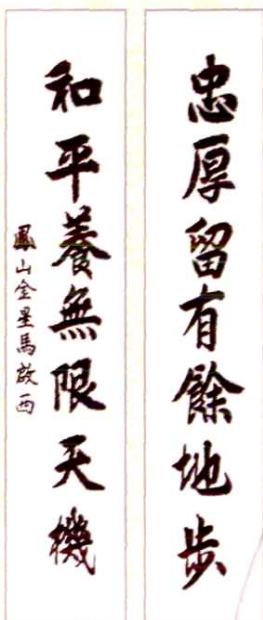 忠厚留有餘地步
和平養無限天機
鳳山金星馬啟西